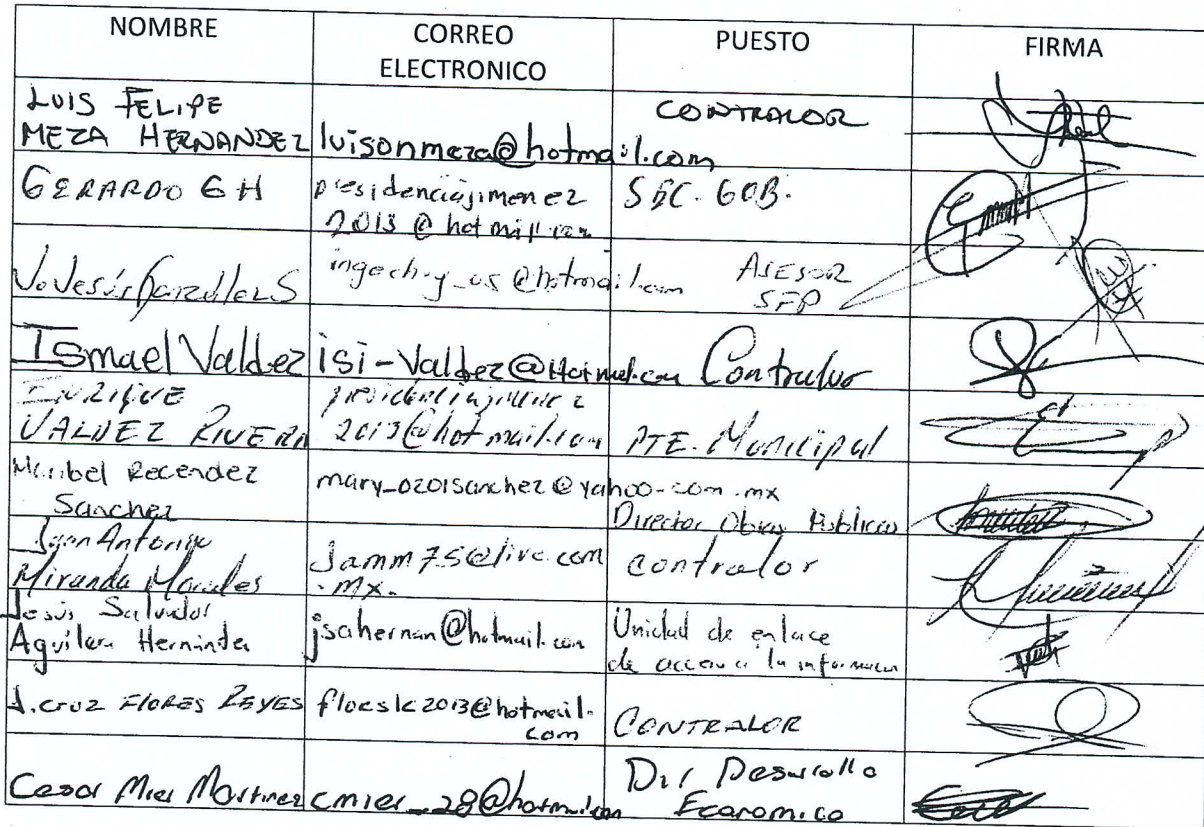 NOMBRE
CORREO
ELECTRONICO
PUESTO
FIRMA
LUIS FELIPE
MEZA HERNANDEZ
luisonmeza@hotmail.com
CONTRALOR
GERARDO G H
presidenciajimenez
2013@hotmail.com
SEC. GOB.
J. Jesús
ASESOR
SFP
Ismael Valdez
isi-Valdez@Hotmail.com
Contralor
ENRIQUE
VALDEZ RIVERA
presidenciajimenez
2013@hotmail.com
PTE. Municipal
Maribel Recendez
Sanchez
mary_0201sanchez@yahoo.com.mx
Director Obras Publicas
Juan Antonio
Miranda Morales
jamm75@live.com
.mx.
contralor
Jesús Salvador
Aguilera Hernández
jsahernan@hotmail.com
Unidad de enlace
de acceso a la información
J. Cruz FLORES REYES
hotmail.
com
CONTRALOR
Cesar Mier Martinez
cmier_28@hotmail.com
Dir Desarrollo
Economico